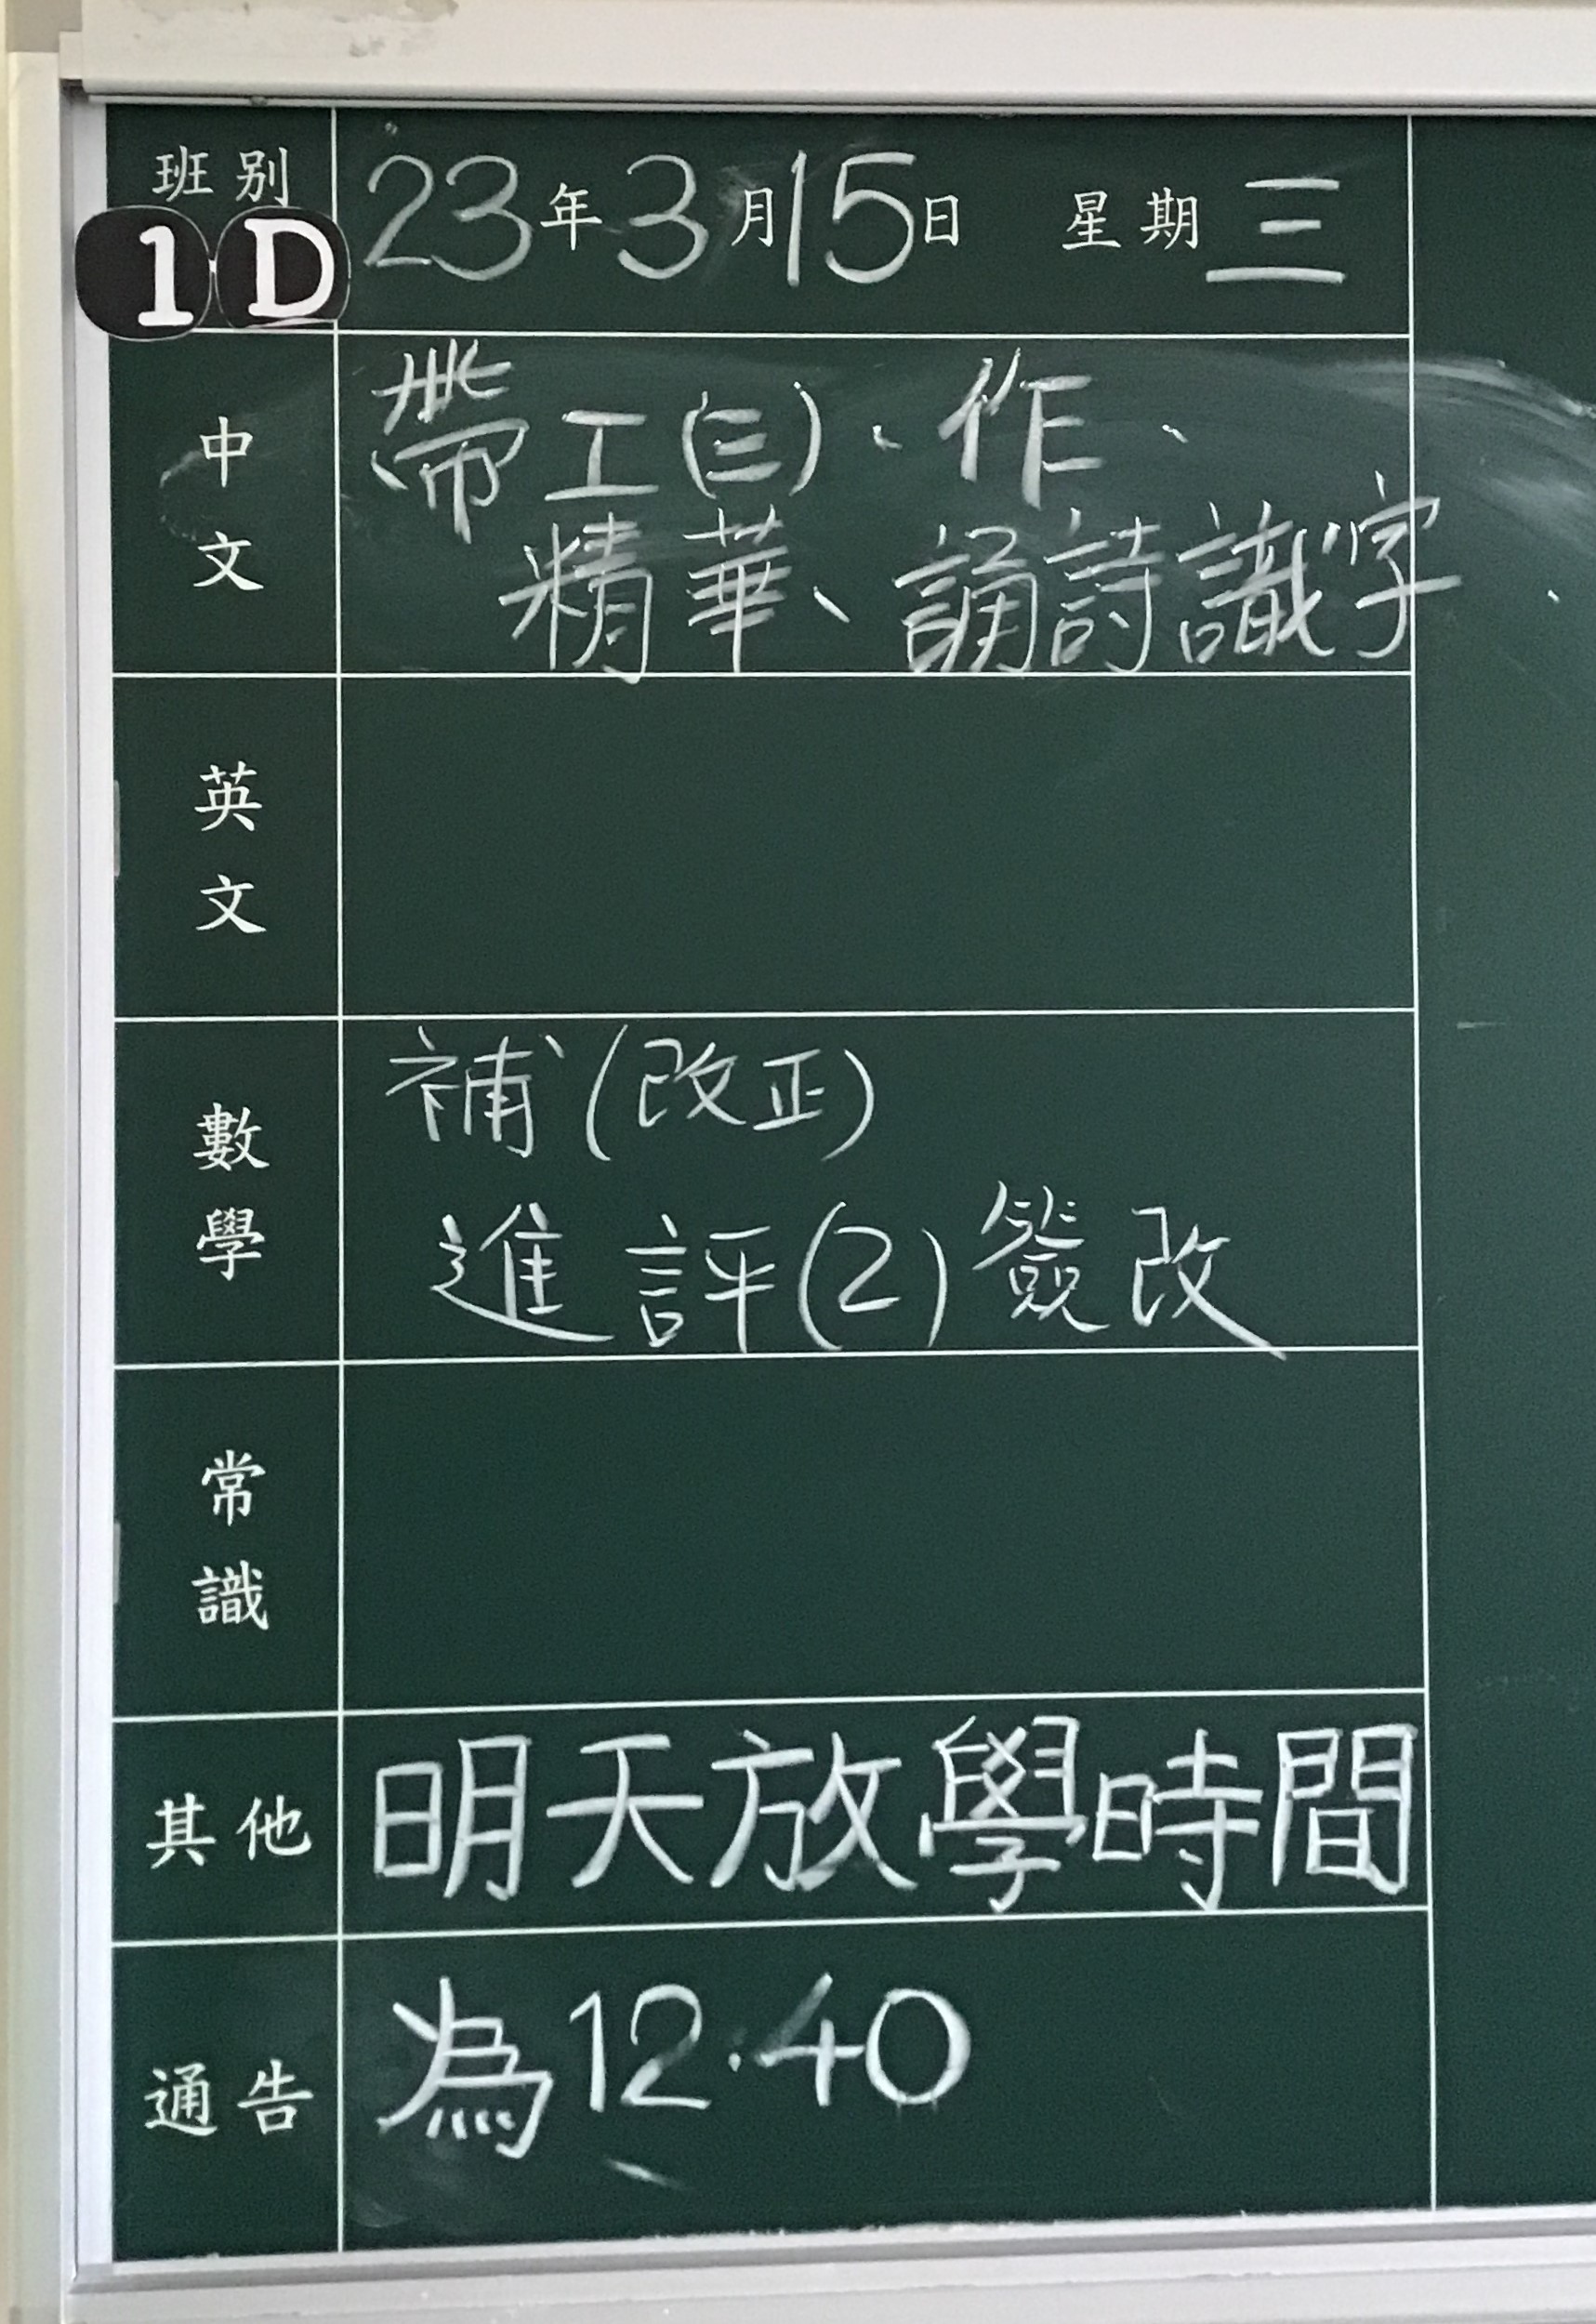 班別
1D
23年3月15日 星期三
中文
帶工(三)、作、
精華、誦詩識字
英文
數學
補(改正)
進評(2)簽改
常識
其他
明天放學時間
通告
為12.40